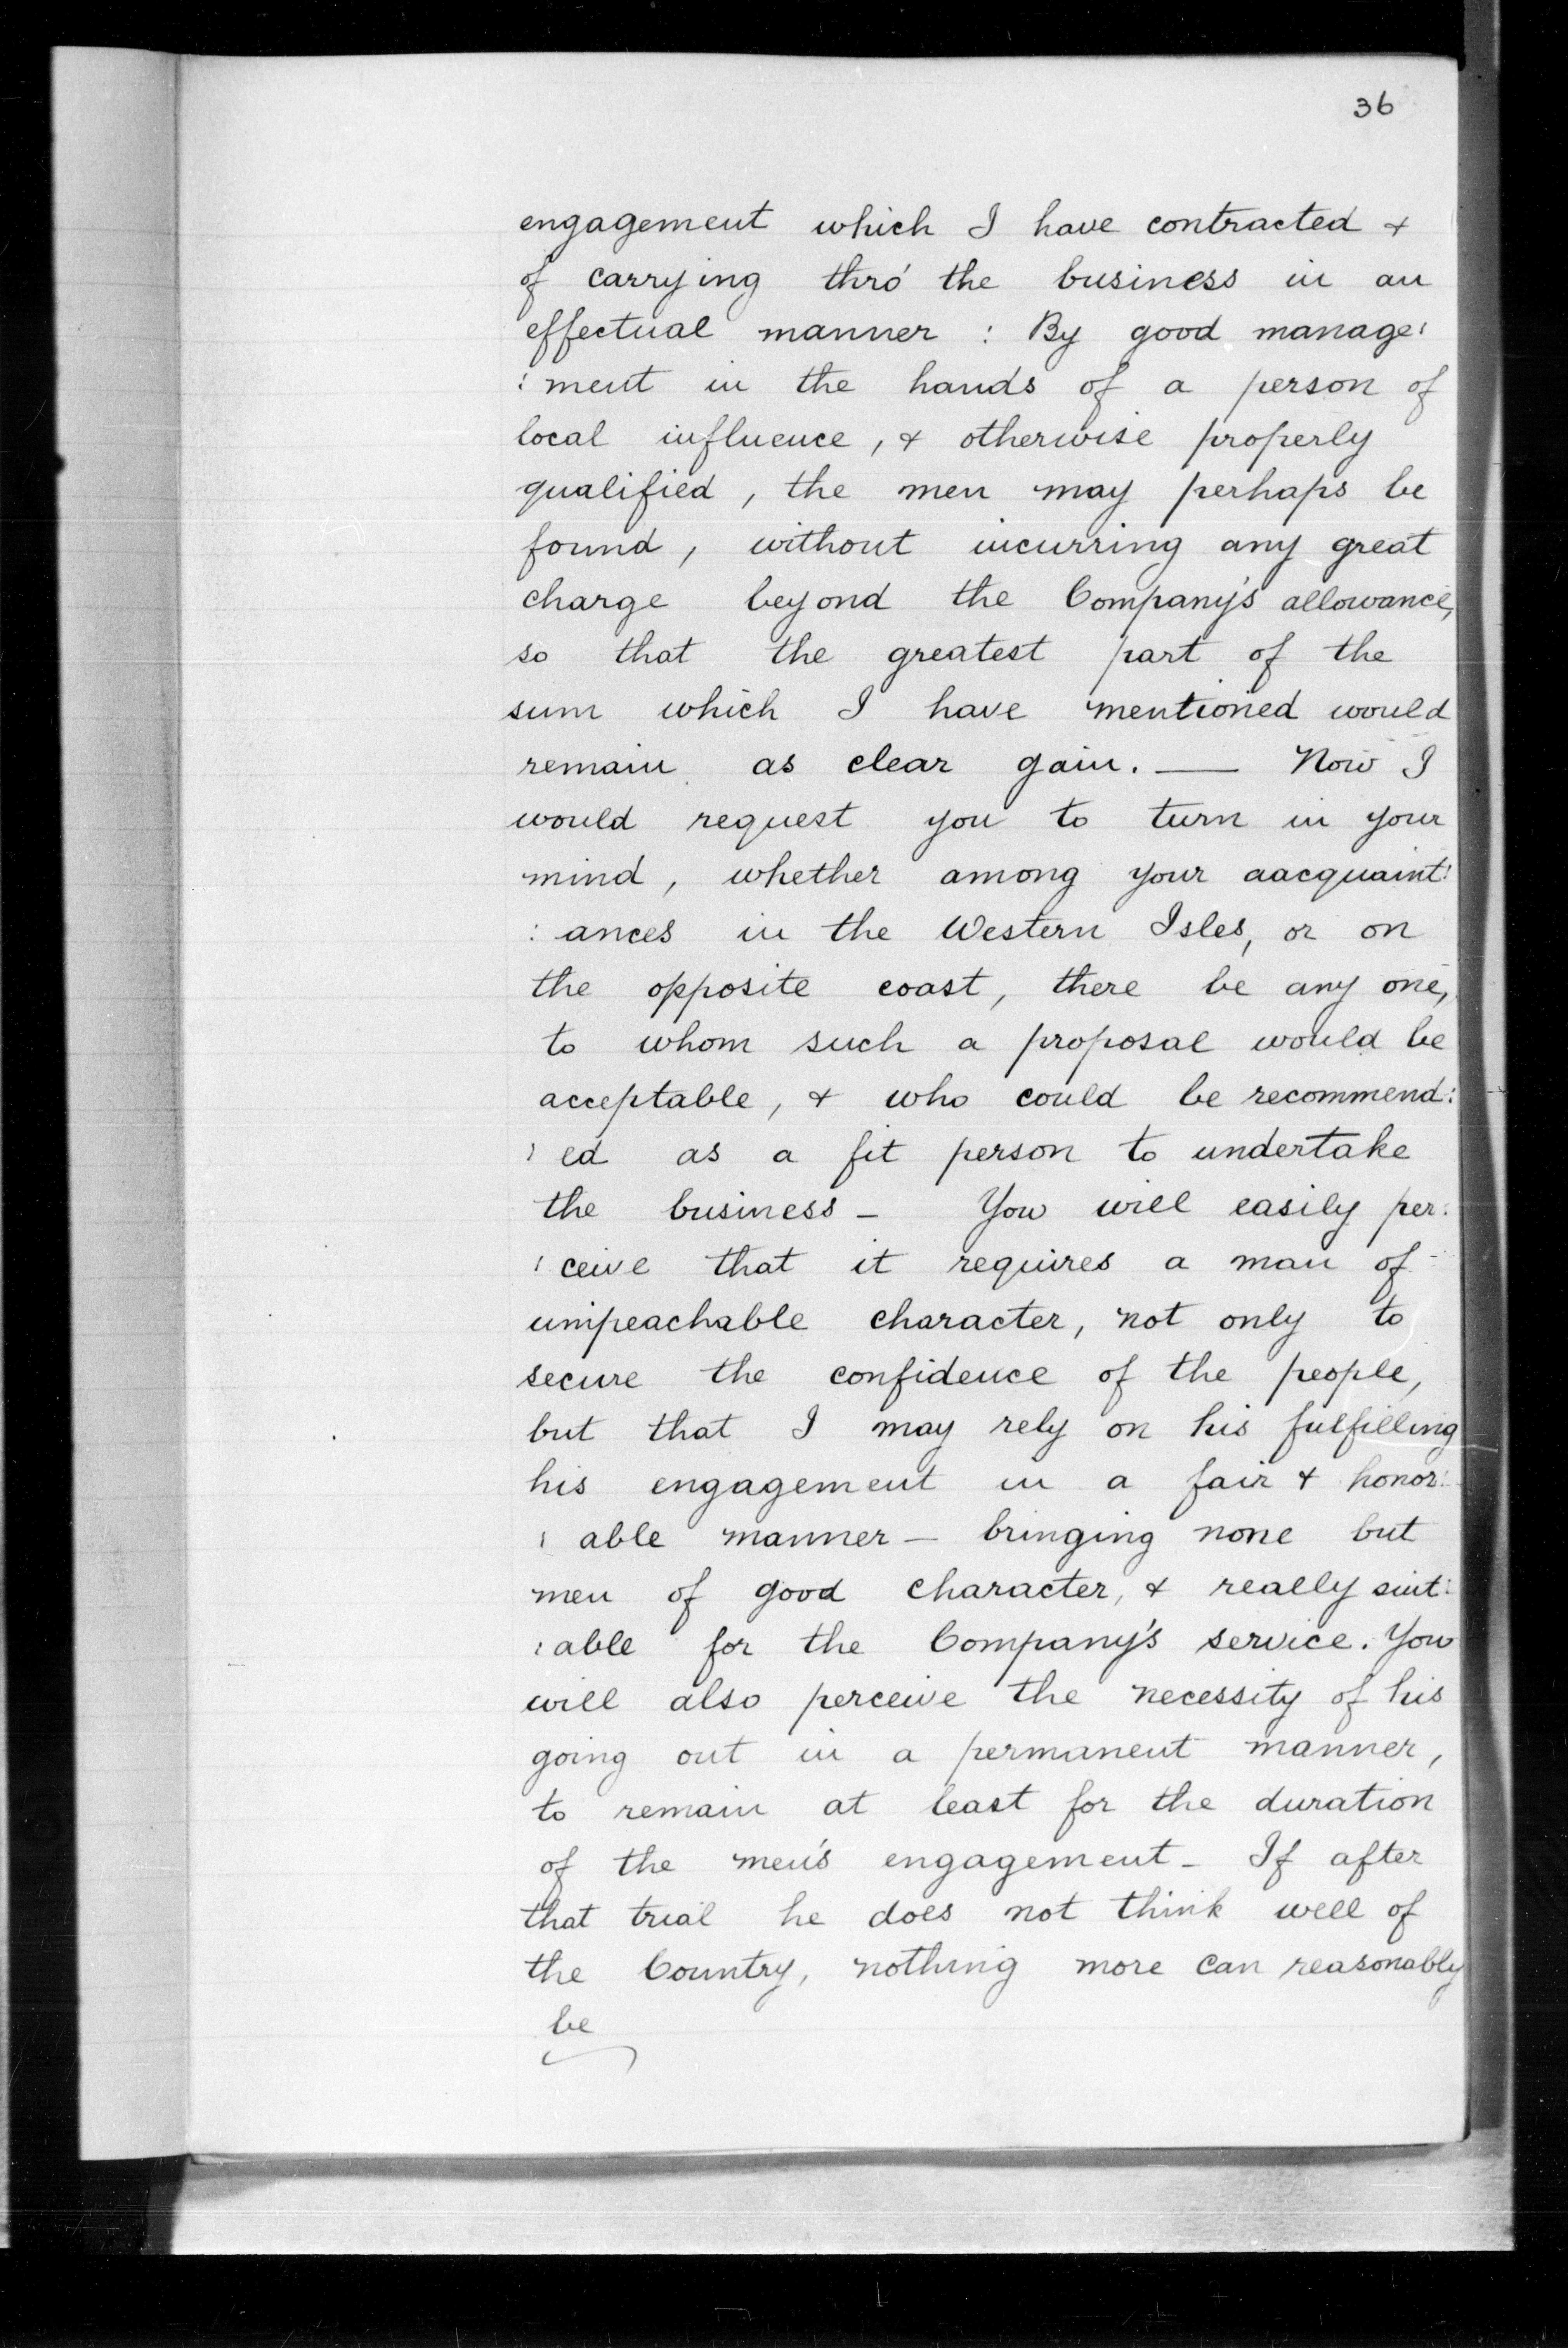 36
engagement which I have contracted &
of carrying thro' the business in an
effectual manner : By good manage:
: ment in the hands of a person of
local influence, & otherwise properly
qualified, the men may perhaps be
found, without incurring any great
charge beyond the Company's allowance,
so that the greatest part of the
sum which I have mentioned would
remain as clear gain. — Now I
would request you to turn in your
mind, whether among your aacquaint:
: ances in the Western Isles, or on
the opposite coast, there be any one,
to whom such a proposal would be
acceptable, & who could be recommend:
: ed as a fit person to undertake
the business – You will easily per:
: ceive that it requires a man of
unipeachable character, not only to
secure the confidence of the people,
but that I may rely on his fulfilling
his engagement in a fair & honor:
: able manner – bringing none but
men of good character, & really suit:
: able for the Company's service. You
will also perceive the necessity of his
going out in a permanent manner,
to remain at least for the duration
of the men's engagement – If after
that trial he does not think well of
the Country, nothing more can reasonably
be